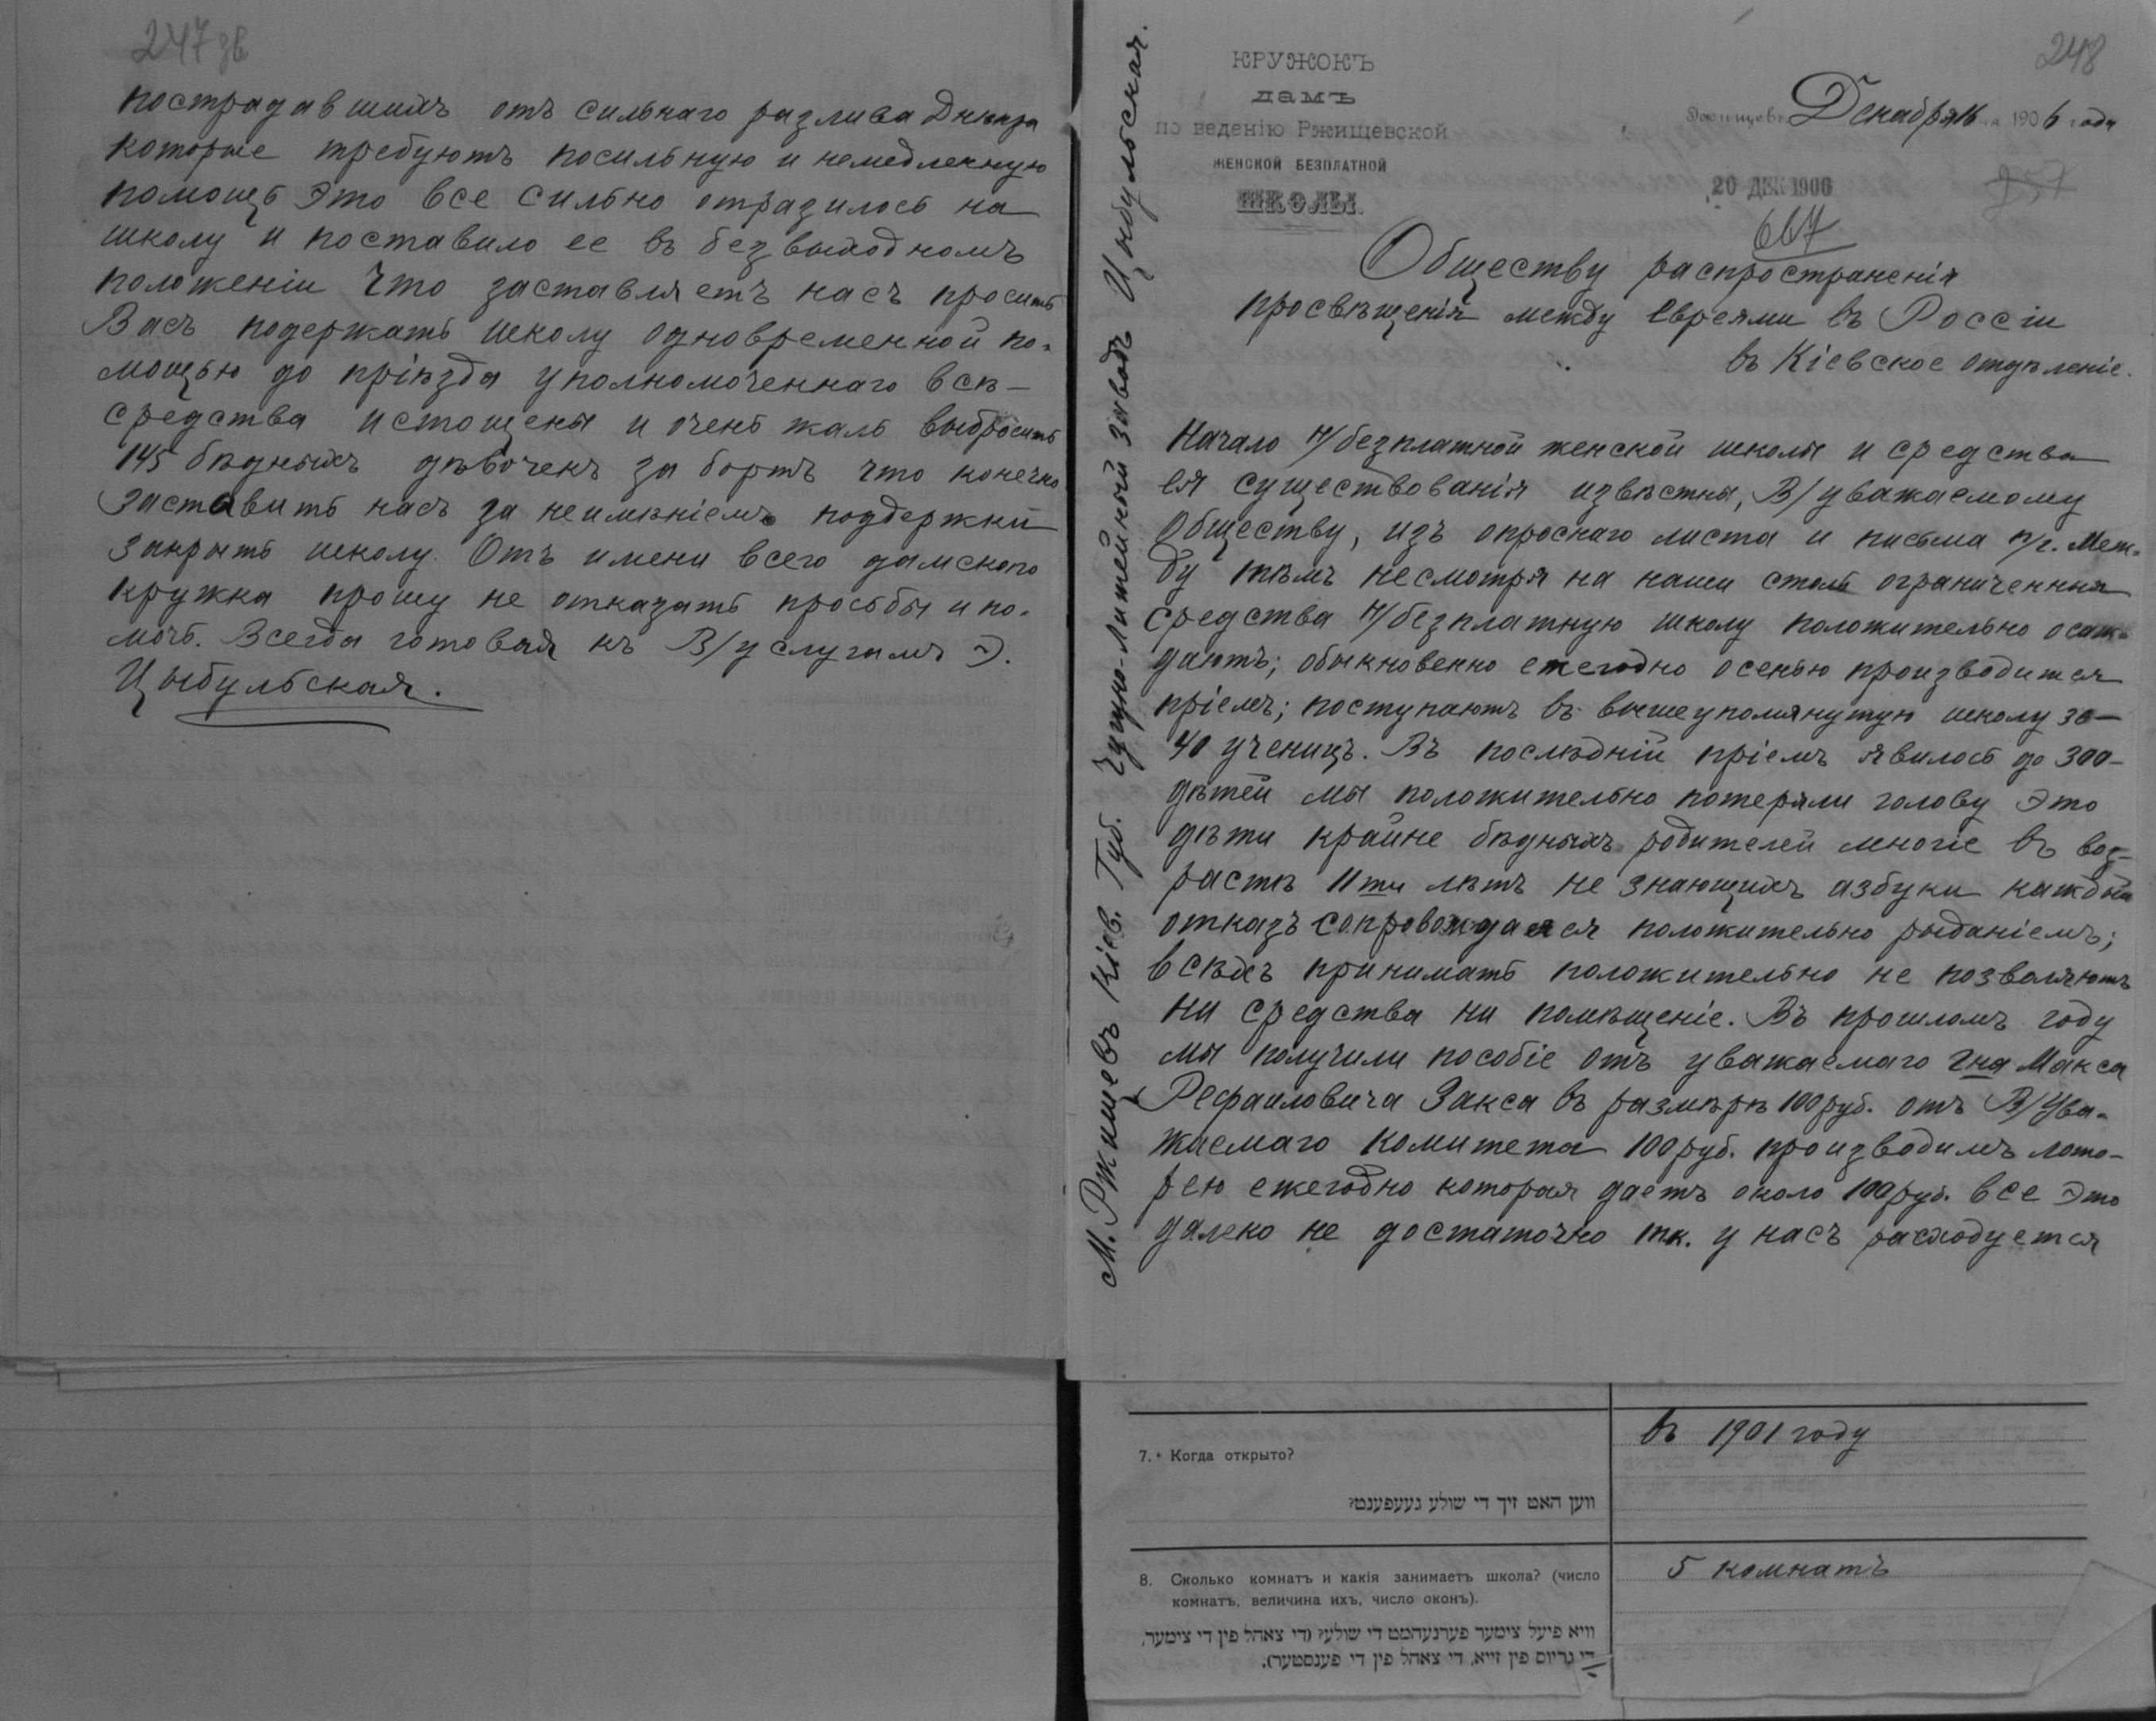 247 зв
пострадавшихъ отъ сильнаго разлива Днѣпра
которые требуютъ посильную и немедленную
помощь Это все сильно отразилось на
школу и поставило ее въ безвыходномъ
положеніи Что заставляетъ насъ просить
Васъ подержать школу одновременной по-
мощью до пріѣзда уполномоченнаго всѣ—
средства истощены и очень жаль выбросить
145 бѣдныхъ дѣвочекъ за бортъ что конечно
заставитъ насъ за неимѣніемъ поддержки
закрыть школу. Отъ имени всего дамского
кружка прошу не отказать просьбы и по-
мочь. Всегда готовая къ В/услугамъ Э.
Цыбульская.
248
КРУЖОКЪ
ДАМЪ
по веденію Ржищевской
ЖЕНСКОЙ БЕЗПЛАТНОЙ
ШКОЛЫ.
Ржищевъ Декабря 1906 года
20 ДЕК 1906
667
Обществу распространенія
просвѣщенія между Евреями въ Россіи
въ Кіевское отдѣленіе.
Начало Н/безплатной женской школы и средства
ея существованія извѣстны, В/уважаемому
Обществу, изъ опроснаго листа и письма п/г. Меж-
ду тѣмъ несмотря на наши столь ограниченныя
средства Н/безплатную школу положительно осаж-
даютъ; обыкновенно ежегодно осенью производится
пріемъ; поступаютъ въ вышеупомянутую школу 30—
40 ученицъ. Въ послѣдній пріемъ явилось до 300—
дѣтей мы положительно потеряли голову Это
дѣти крайне бѣдныхъ родителей многіе въ воз-
растѣ 11 ти лѣтъ не знающихъ азбуки каждый
отказъ сопровождался положительно рыданіемъ;
всѣхъ принимать положительно не позволяютъ
ни средства ни помѣщеніе. Въ прошломъ году
мы получили пособіе отъ уважаемаго г на Макса
Рефаиловича Закса въ размѣрѣ 100 руб. отъ В/Ува-
жаемаго Комитета 100 руб. производимъ лото-
рею ежегодно которая даетъ около 100 руб. все это
далеко не достаточно тк. у насъ расходуется
М. Ржищевъ Кіев. Губ. Чугуно-Литейный заводъ Цыбульская.
7. Когда открыто?
ווען האט זיך די שולע געעפענט?
въ 1901 году
8. Сколько комнатъ и какія занимаетъ школа? (число
комнатъ, величина ихъ, число оконъ).
וויא פיעל צימער פערנעהמט די שולע? (די צאהל פין די צימער,
די גרױס פין זײא, די צאהל פין די פענסטער).
5 комнатъ